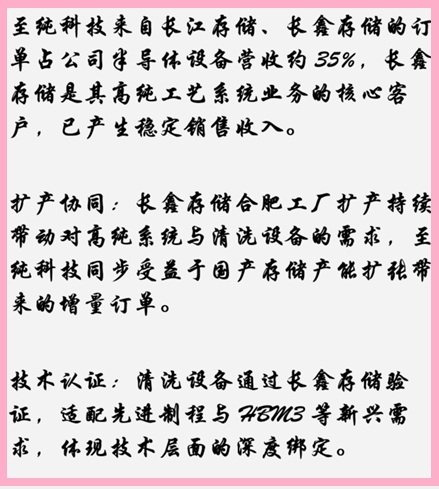 至纯科技来自长江存储、长鑫存储的订
单占公司半导体设备营收约 35%，长鑫
存储是其高纯工艺系统业务的核心客
户，已产生稳定销售收入。
扩产协同：长鑫存储合肥工厂扩产持续
带动对高纯系统与清洗设备的需求，至
纯科技同步受益于国产存储产能扩张带
来的增量订单。
技术认证：清洗设备通过长鑫存储验
证，适配先进制程与 HBM3 等新兴需
求，体现技术层面的深度绑定。